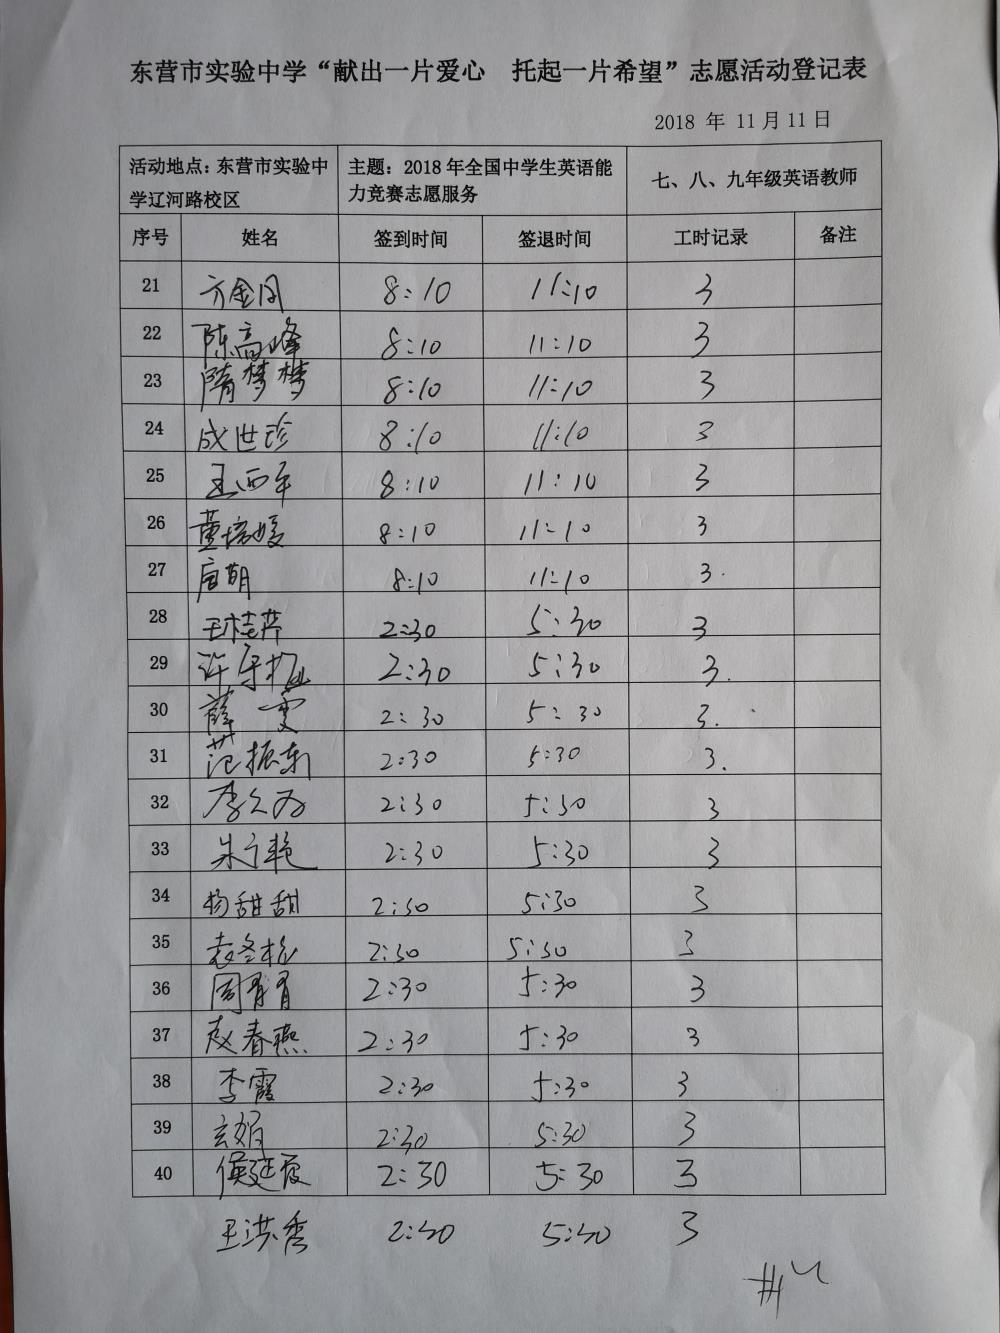 东营市实验中学“献出一片爱心 托起一片希望”志愿活动登记表
2018 年 11月11日
活动地点：东营市实验中学辽河路校区 主题：2018 年全国中学生英语能力竞赛志愿服务 七、八、九年级英语教师
序号 姓名 签到时间 签退时间 工时记录 备注
21 方金凤 8:10 11:10 3
22 陈高峰 8:10 11:10 3
23 隋梦梦 8:10 11:10 3
24 成世珍 8:10 11:10 3
25 王西军 8:10 11:10 3
26 董培媛 8:10 11:10 3
27 唐朝 8:10 11:10 3.
28 王桂芹 2:30 5:30 3
29 许 2:30 5:30 3.
30 薛雯 2:30 5:30 3.
31 范振东 2:30 5:30 3.
32 李 2:30 5:30 3
33 朱 艳 2:30 5:30 3
34 杨甜甜 2:30 5:30 3
35 袁冬梅 2:30 5:30 3
36 周青青 2:30 5:30 3
37 赵春燕 2:30 5:30 3
38 李霞 2:30 5:30 3
39 玄娟 2:30 5:30 3
40 侯延霞 2:30 5:30 3
王洪秀 2:30 5:30 3